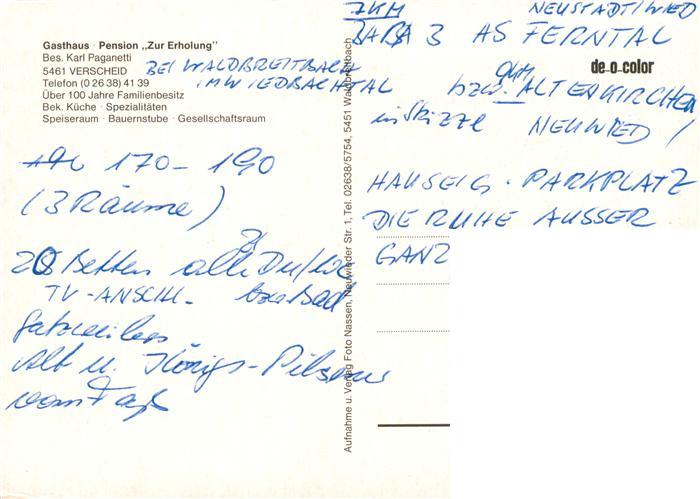 Gasthaus · Pension „Zur Erholung"
Bes. Karl Paganetti
5461 VERSCHEID BEI WALDBREITBACH
Telefon (0 26 38) 41 39 IM WIEDBACHTAL
Über 100 Jahre Familienbesitz
Bek. Küche · Spezialitäten
Speiseraum · Bauernstube · Gesellschaftsraum
170 – 190
(3 Räume)
28 Betten alle Du/WC
TV-ANSCHL. bzw Bad
Gatzweilers
Alt u. Königs-Pilsener
vom Faß
Aufnahme u. Verlag Foto Nassen, Neuwieder Str. 1, Tel. 02638/5754, 5451 Waldbreitbach
7KM NEUSTADT/WIED
BAB A 3 AS FERNTAL
de-o-color
bzw. ALTENKIRCHEN
NEUWIED /
HAUSEIG. PARKPLATZ
DIE RUHE AUSSER
GANZ